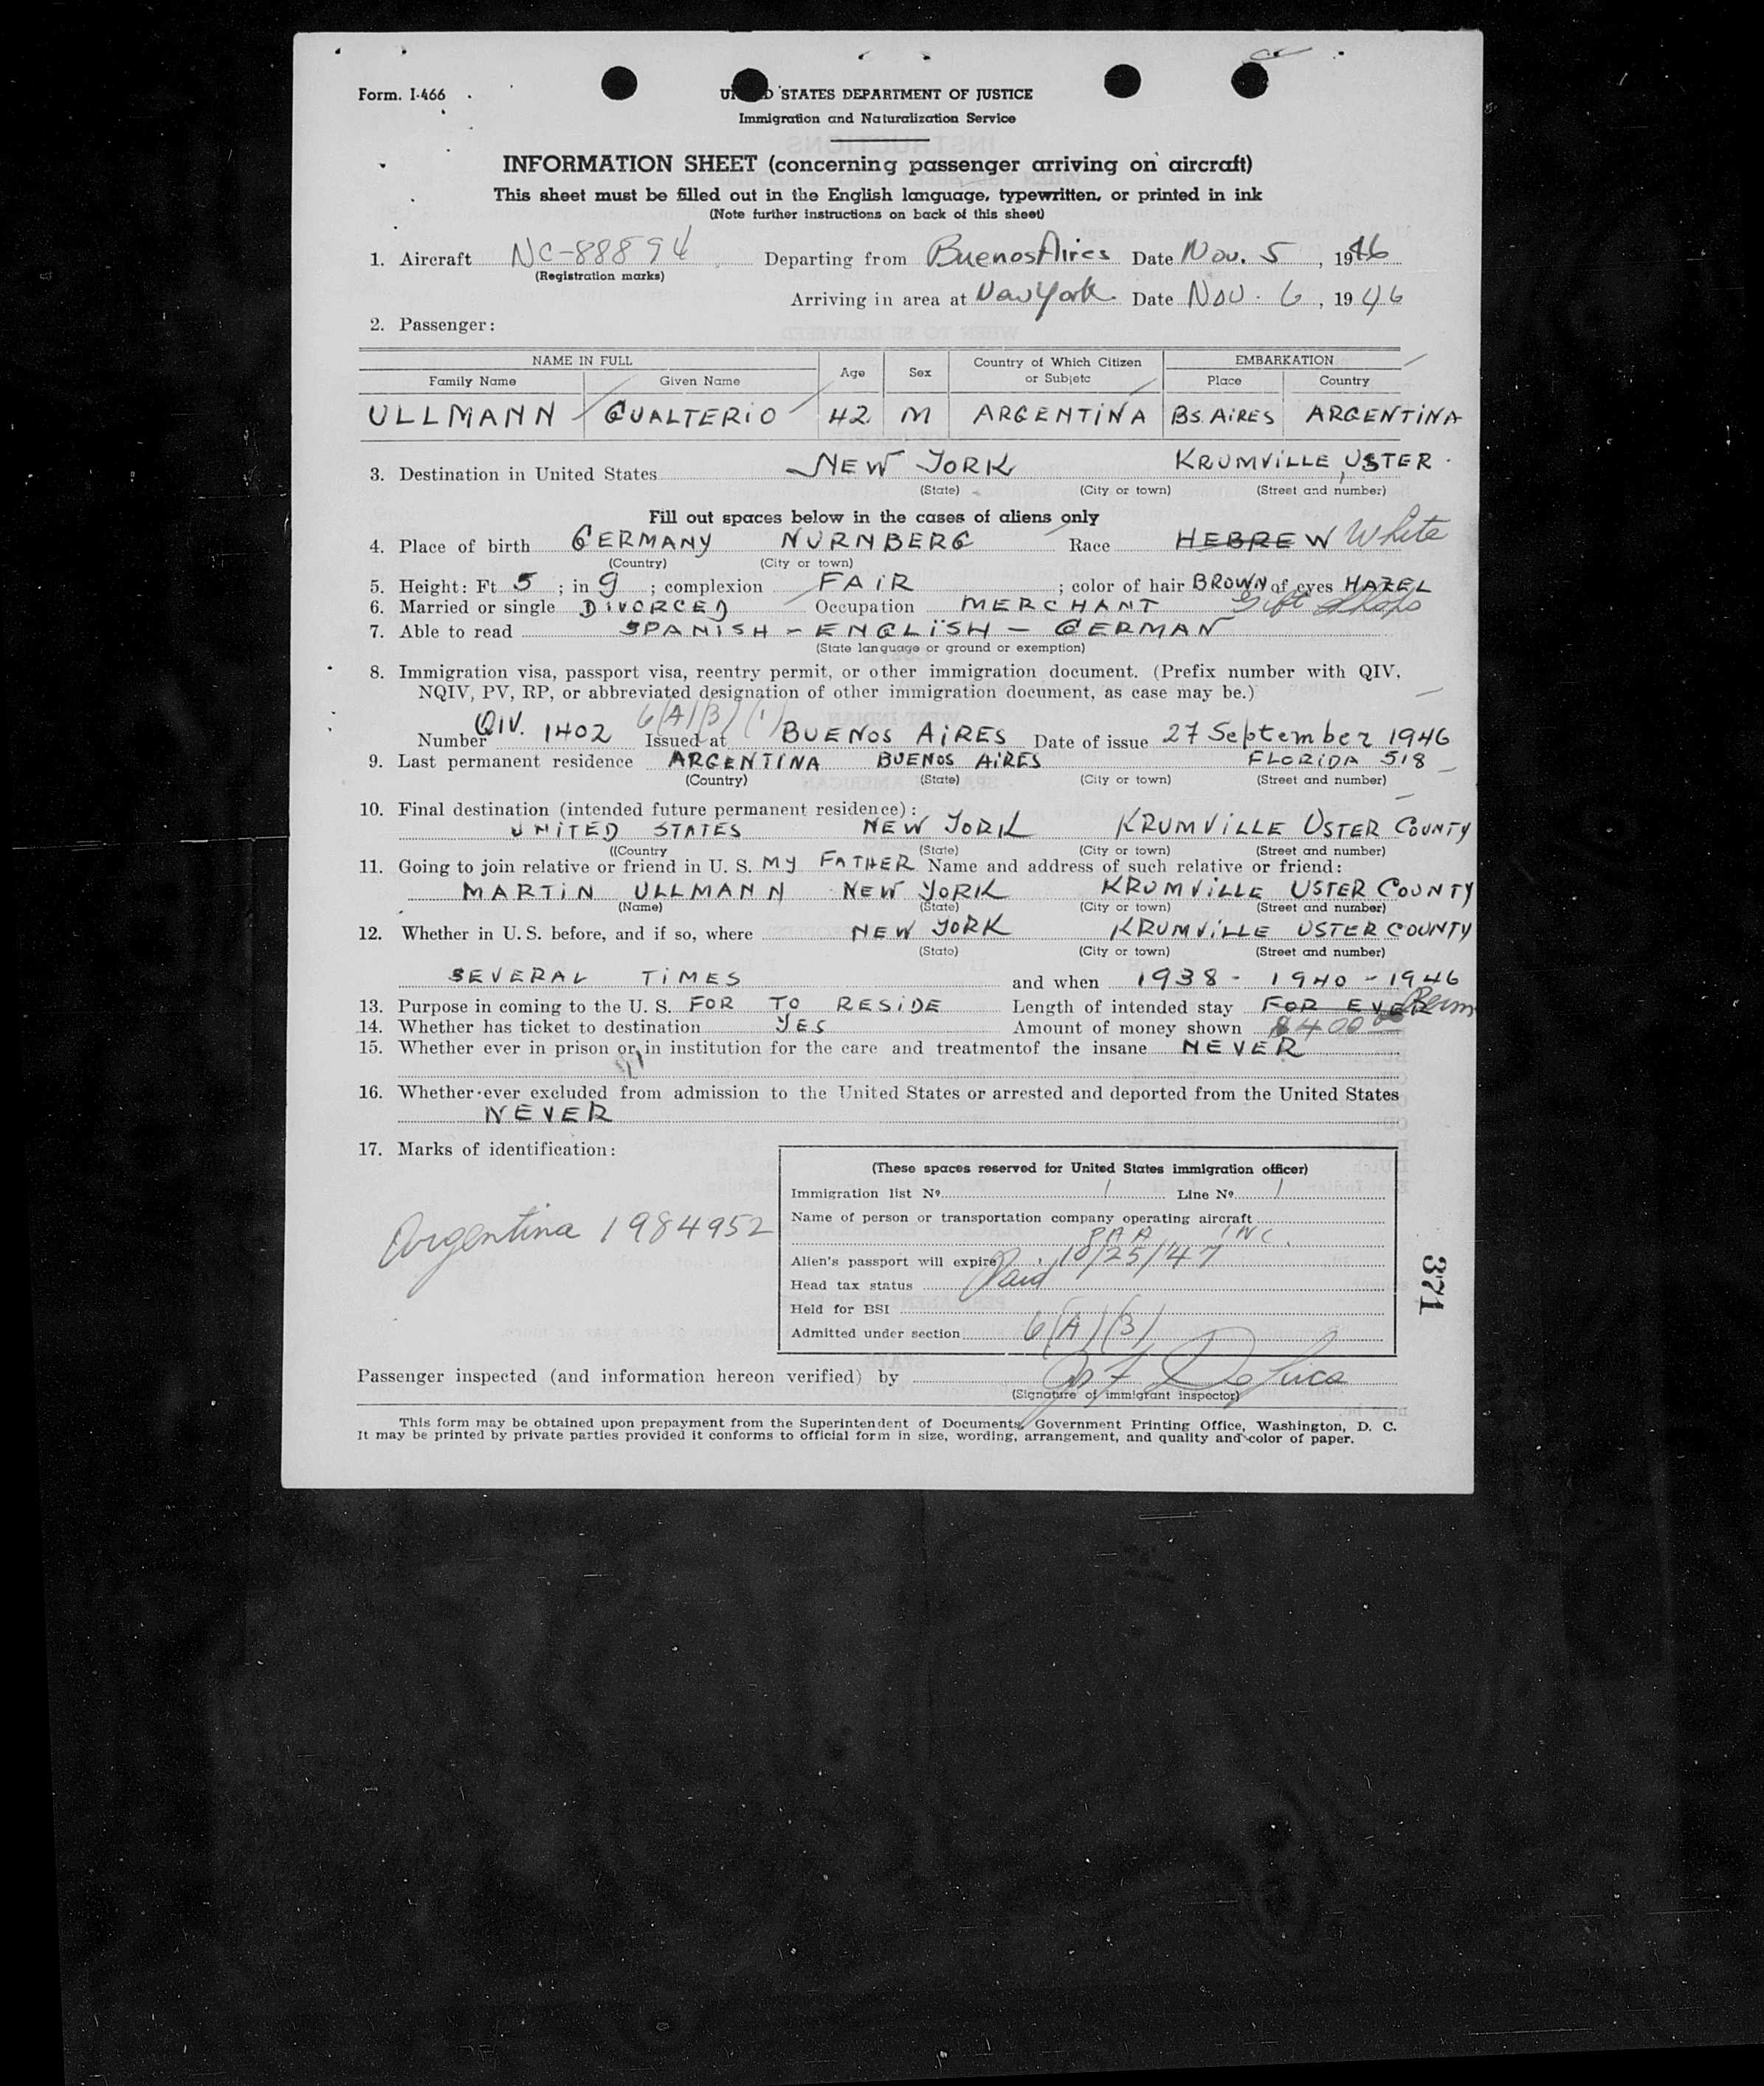 Form. I-466
D STATES DEPARTMENT OF JUSTICE
Immigration and Naturalization Service
INFORMATION SHEET (concerning passenger arriving on aircraft)
This sheet must be filled out in the English language, typewritten, or printed in ink
(Note further instructions on back of this sheet)
1. Aircraft NC-88894 Departing from Buenos Aires Date Nov. 5, 1946
(Registration marks)
Arriving in area at New York Date Nov. 6, 1946
2. Passenger:
NAME IN FULL Age Sex Country of Which Citizen or Subjetc EMBARKATION
Family Name Given Name Place Country
ULLMANN GUALTERIO 42 M ARGENTINA BS. AIRES ARGENTINA
3. Destination in United States NEW YORK KRUMVILLE, USTER.
(State) (City or town) (Street and number)
Fill out spaces below in the cases of aliens only
4. Place of birth GERMANY NURNBERG Race HEBREW White
(Country) (City or town)
5. Height: Ft 5; in 9; complexion FAIR; color of hair BROWN of eyes HAZEL
6. Married or single DIVORCED Occupation MERCHANT Gift Shops
7. Able to read SPANISH - ENGLISH - GERMAN
(State language or ground or exemption)
8. Immigration visa, passport visa, reentry permit, or other immigration document. (Prefix number with QIV,
NQIV, PV, RP, or abbreviated designation of other immigration document, as case may be.)
6(A)(3)(1)
Number QIV. 1402 Issued at BUENOS AIRES Date of issue 27 September 1946
9. Last permanent residence ARGENTINA BUENOS AIRES FLORIDA 518
(Country) (State) (City or town) (Street and number)
10. Final destination (intended future permanent residence):
UNITED STATES NEW YORK KRUMVILLE USTER COUNTY
((Country (State) (City or town) (Street and number)
11. Going to join relative or friend in U. S. MY FATHER Name and address of such relative or friend:
MARTIN ULLMANN NEW YORK KRUMVILLE USTER COUNTY
(Name) (State) (City or town) (Street and number)
12. Whether in U. S. before, and if so, where NEW YORK KRUMVILLE USTER COUNTY
(State) (City or town) (Street and number)
SEVERAL TIMES and when 1938 - 1940 - 1946
13. Purpose in coming to the U. S. FOR TO RESIDE Length of intended stay FOR EVER Perm
14. Whether has ticket to destination YES Amount of money shown $400
15. Whether ever in prison or in institution for the care and treatmentof the insane NEVER
16. Whether ever excluded from admission to the United States or arrested and deported from the United States
NEVER
17. Marks of identification:
Argentina 1984952
(These spaces reserved for United States immigration officer)
Immigration list Nº 1 Line Nº 1
Name of person or transportation company operating aircraft
PAA INC.
Alien's passport will expire 10/25/47
Head tax status Paid
Held for BSI
Admitted under section 6(A)(3)
371
Passenger inspected (and information hereon verified) by
(Signature of immigrant inspector)
This form may be obtained upon prepayment from the Superintendent of Documents, Government Printing Office, Washington, D. C.
It may be printed by private parties provided it conforms to official form in size, wording, arrangement, and quality and color of paper.